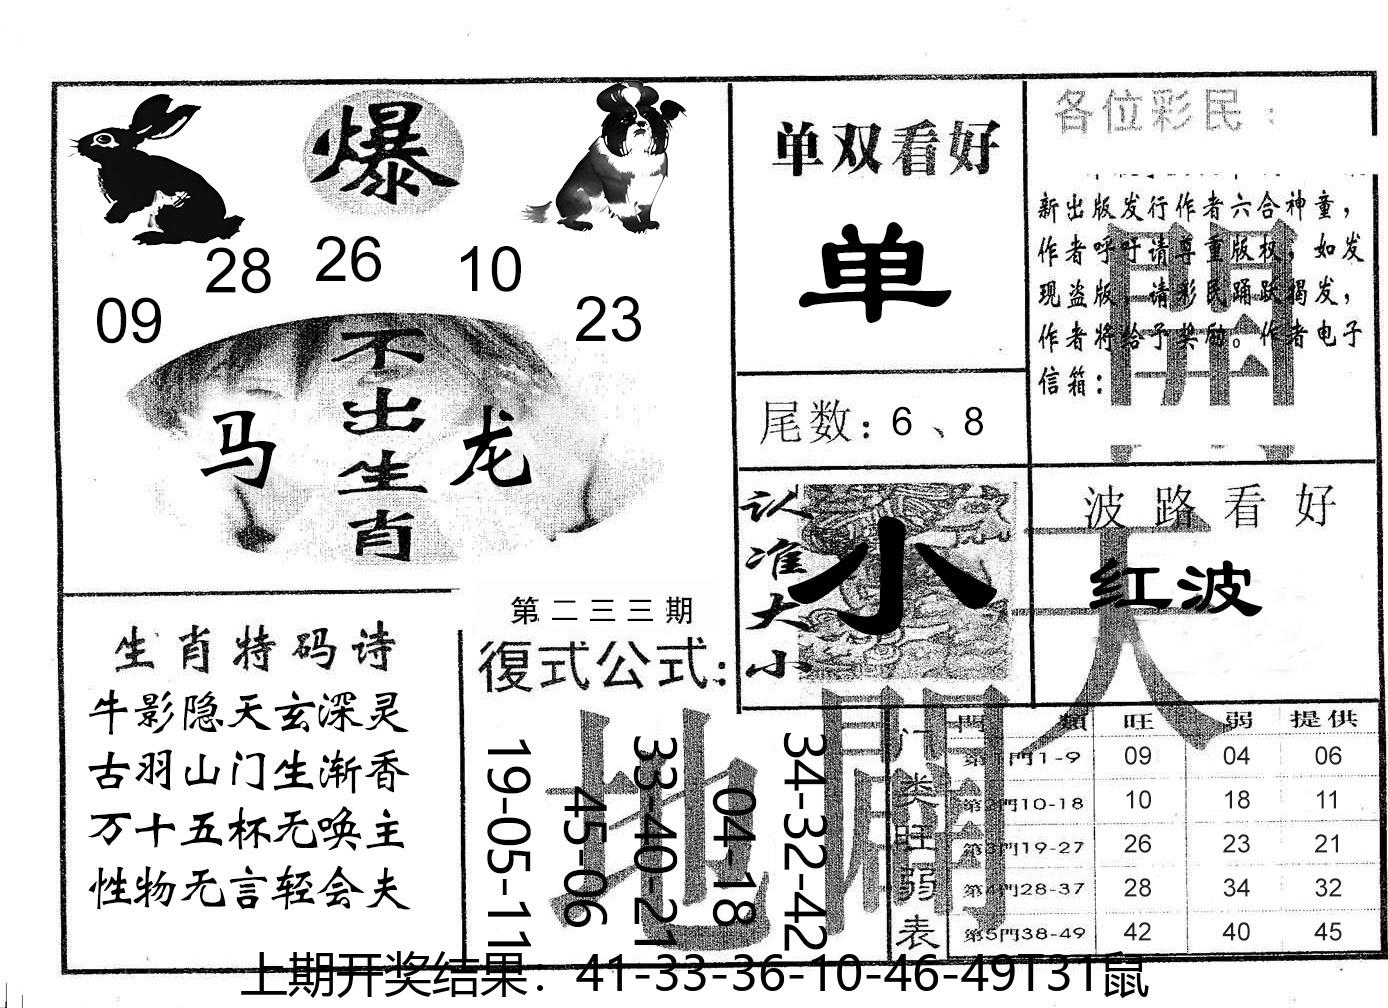 爆
28 26 10
09 23
不出生肖
马 龙
单双看好
单
尾数：6、8
各位彩民：
新出版发行作者六合神童，
作者呼吁请尊重版权，如发
现盗版，请彩民踊跃揭发，
作者将给予奖励。作者电子
信箱：
開
认准大小
小
波路看好
红波
天
生肖特码诗
牛影隐天玄深灵
古羽山门生渐香
万十五杯无唤主
性物无言轻会夫
第二三三期
復式公式：
19-05-11
45-06
33-40-21
04-18
34-32-42
地
開
门类旺弱表
門類 旺 弱 提供
第1門1-9 09 04 06
第2門10-18 10 18 11
第3門19-27 26 23 21
第4門28-37 28 34 32
第5門38-49 42 40 45
上期开奖结果：41-33-36-10-46-49T31鼠